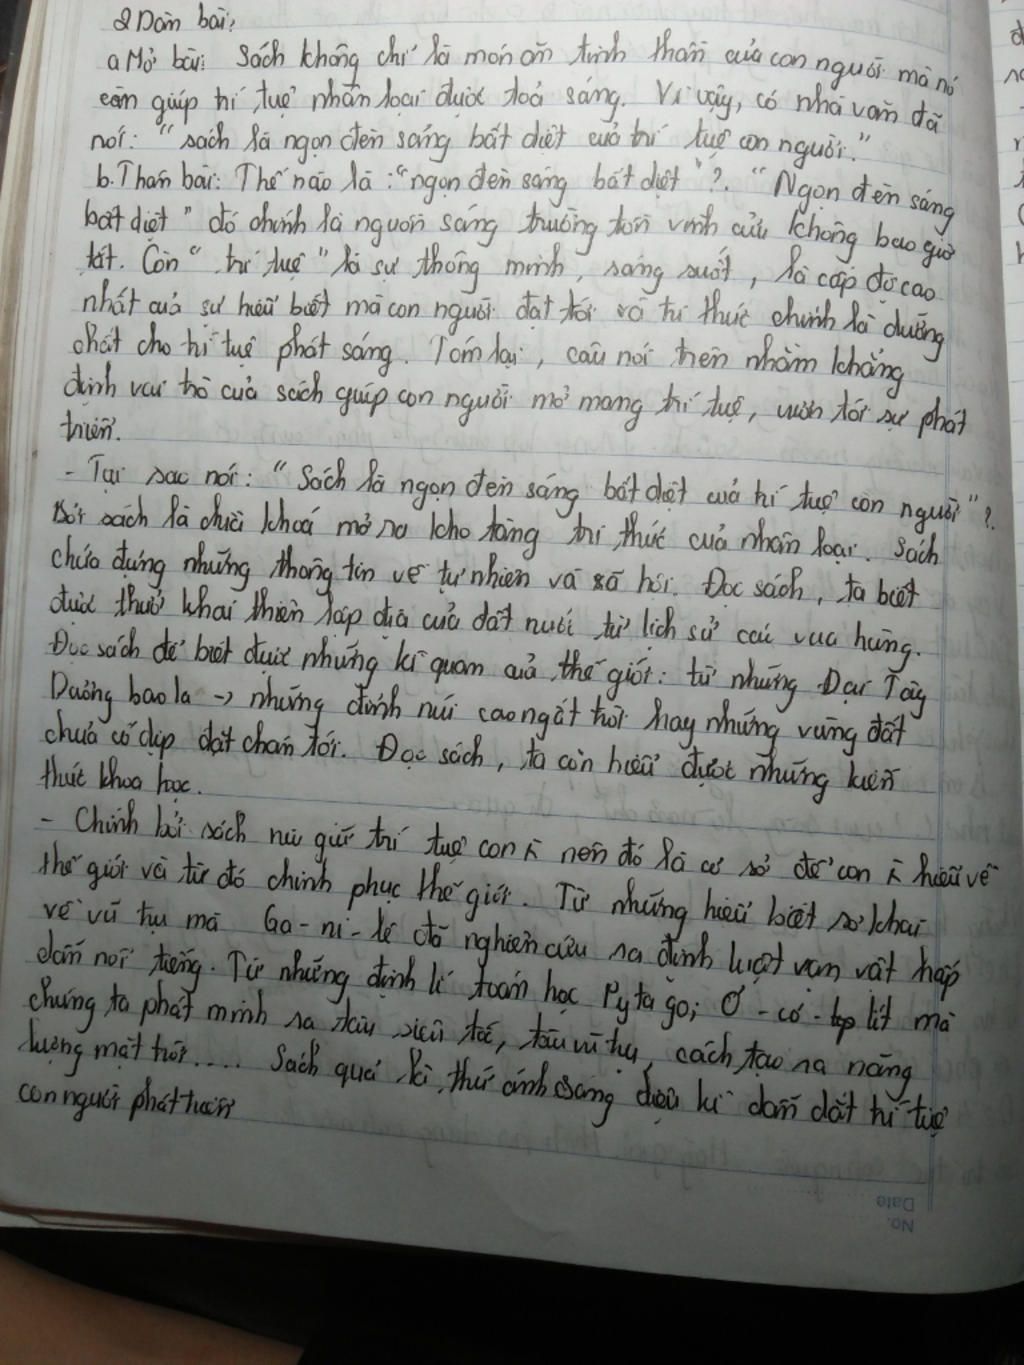 2 Dàn bài:
a Mở bài: Sách không chỉ là món ăn tinh thần của con người mà nó
còn giúp trí tuệ nhân loại được toả sáng. Vì vậy, có nhà văn đã
nói: "sách là ngọn đèn sáng bất diệt của trí tuệ con người."
b. Thân bài: Thế nào là: "ngọn đèn sáng bất diệt"?. "Ngọn đèn sáng
bất diệt" đó chính là nguồn sáng trường tồn vĩnh cửu không bao giờ
tắt. Còn "trí tuệ" là sự thông minh, sáng suốt, là cấp độ cao
nhất của sự hiểu biết mà con người đạt tới và tri thức chính là dưỡng
chất cho trí tuệ phát sáng. Tóm lại, câu nói trên nhằm khẳng
định vai trò của sách giúp con người mở mang trí tuệ, vươn tới sự phát
triển.
- Tại sao nói: "Sách là ngọn đèn sáng bất diệt của trí tuệ con người"?
Bởi sách là chìa khoá mở ra kho tàng tri thức của nhân loại. Sách
chứa đựng những thông tin về tự nhiên và xã hội. Đọc sách, ta biết
được thưở khai thiên lập địa của đất nước từ lịch sử các vua hùng.
Đọc sách để biết được những kì quan của thế giới: từ những Đại Tây
Dương bao la -> những đỉnh núi cao ngất trời hay những vùng đất
chưa có dịp đặt chân tới. Đọc sách, ta còn hiểu được những kiến
thức khoa học.
- Chính bởi sách níu giữ trí tuệ con nên đó là cơ sở để con hiểu về
thế giới và từ đó chinh phục thế giới. Từ những hiểu biết sơ khai
về vũ trụ mà Ga-ni-lê đã nghiên cứu ra định luật vạn vật hấp
dẫn nổi tiếng. Từ những định lí toán học Pytago; Ơ-cơ-lit mà
chúng ta phát minh ra tàu siêu tốc, tàu vũ trụ, cách tạo ra năng
lượng mặt trời..... Sách quả là thứ ánh sáng diệu kì dẫn dắt trí tuệ
con người phát triển
No.
Date